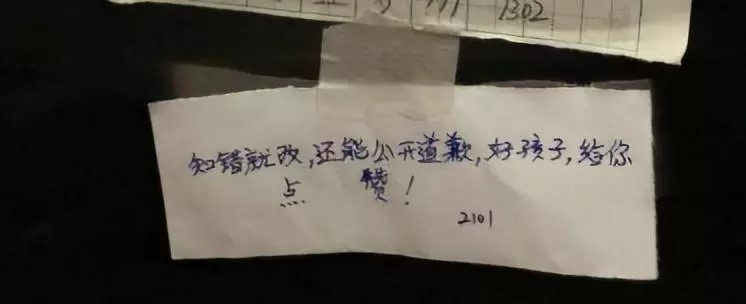 1302
知错就改,还能公开道歉,好孩子,给你
点赞!
2101